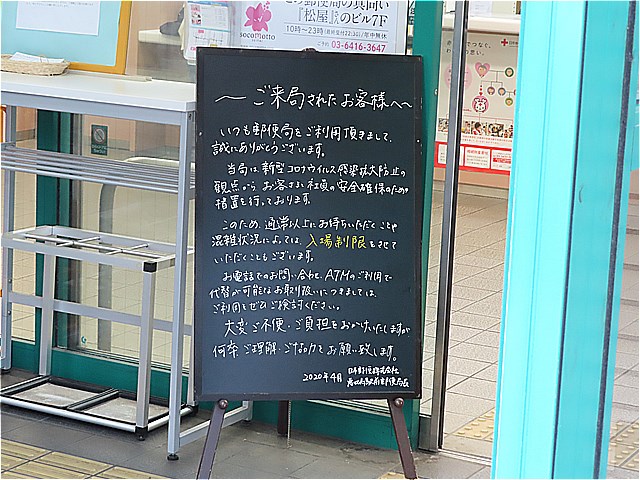 この郵便局の真向い
『松屋』さんのビル7F
10時〜23時(最終受付22:30)/年中無休
ご予約 03-6416-3647
socomotto
〜ご来局されたお客様へ〜
いつも郵便局をご利用頂きまして、
誠にありがとうございます。
当局は、新型コロナウイルス感染拡大防止の
観点から、お客さまと社員の安全確保のため
措置を行っております。
このため、通常以上にお待ちいただくことや
混雑状況によっては、入場制限をさせて
いただくこともございます。
お電話でのお問い合わせ、ATMのご利用で
代替が可能なお取り扱いにつきましては、
ご利用をぜひご検討ください。
大変ご不便・ご負担をおかけいたしますが
何卒ご理解・ご協力をお願い致します。
2020年4月
日本郵便株式会社